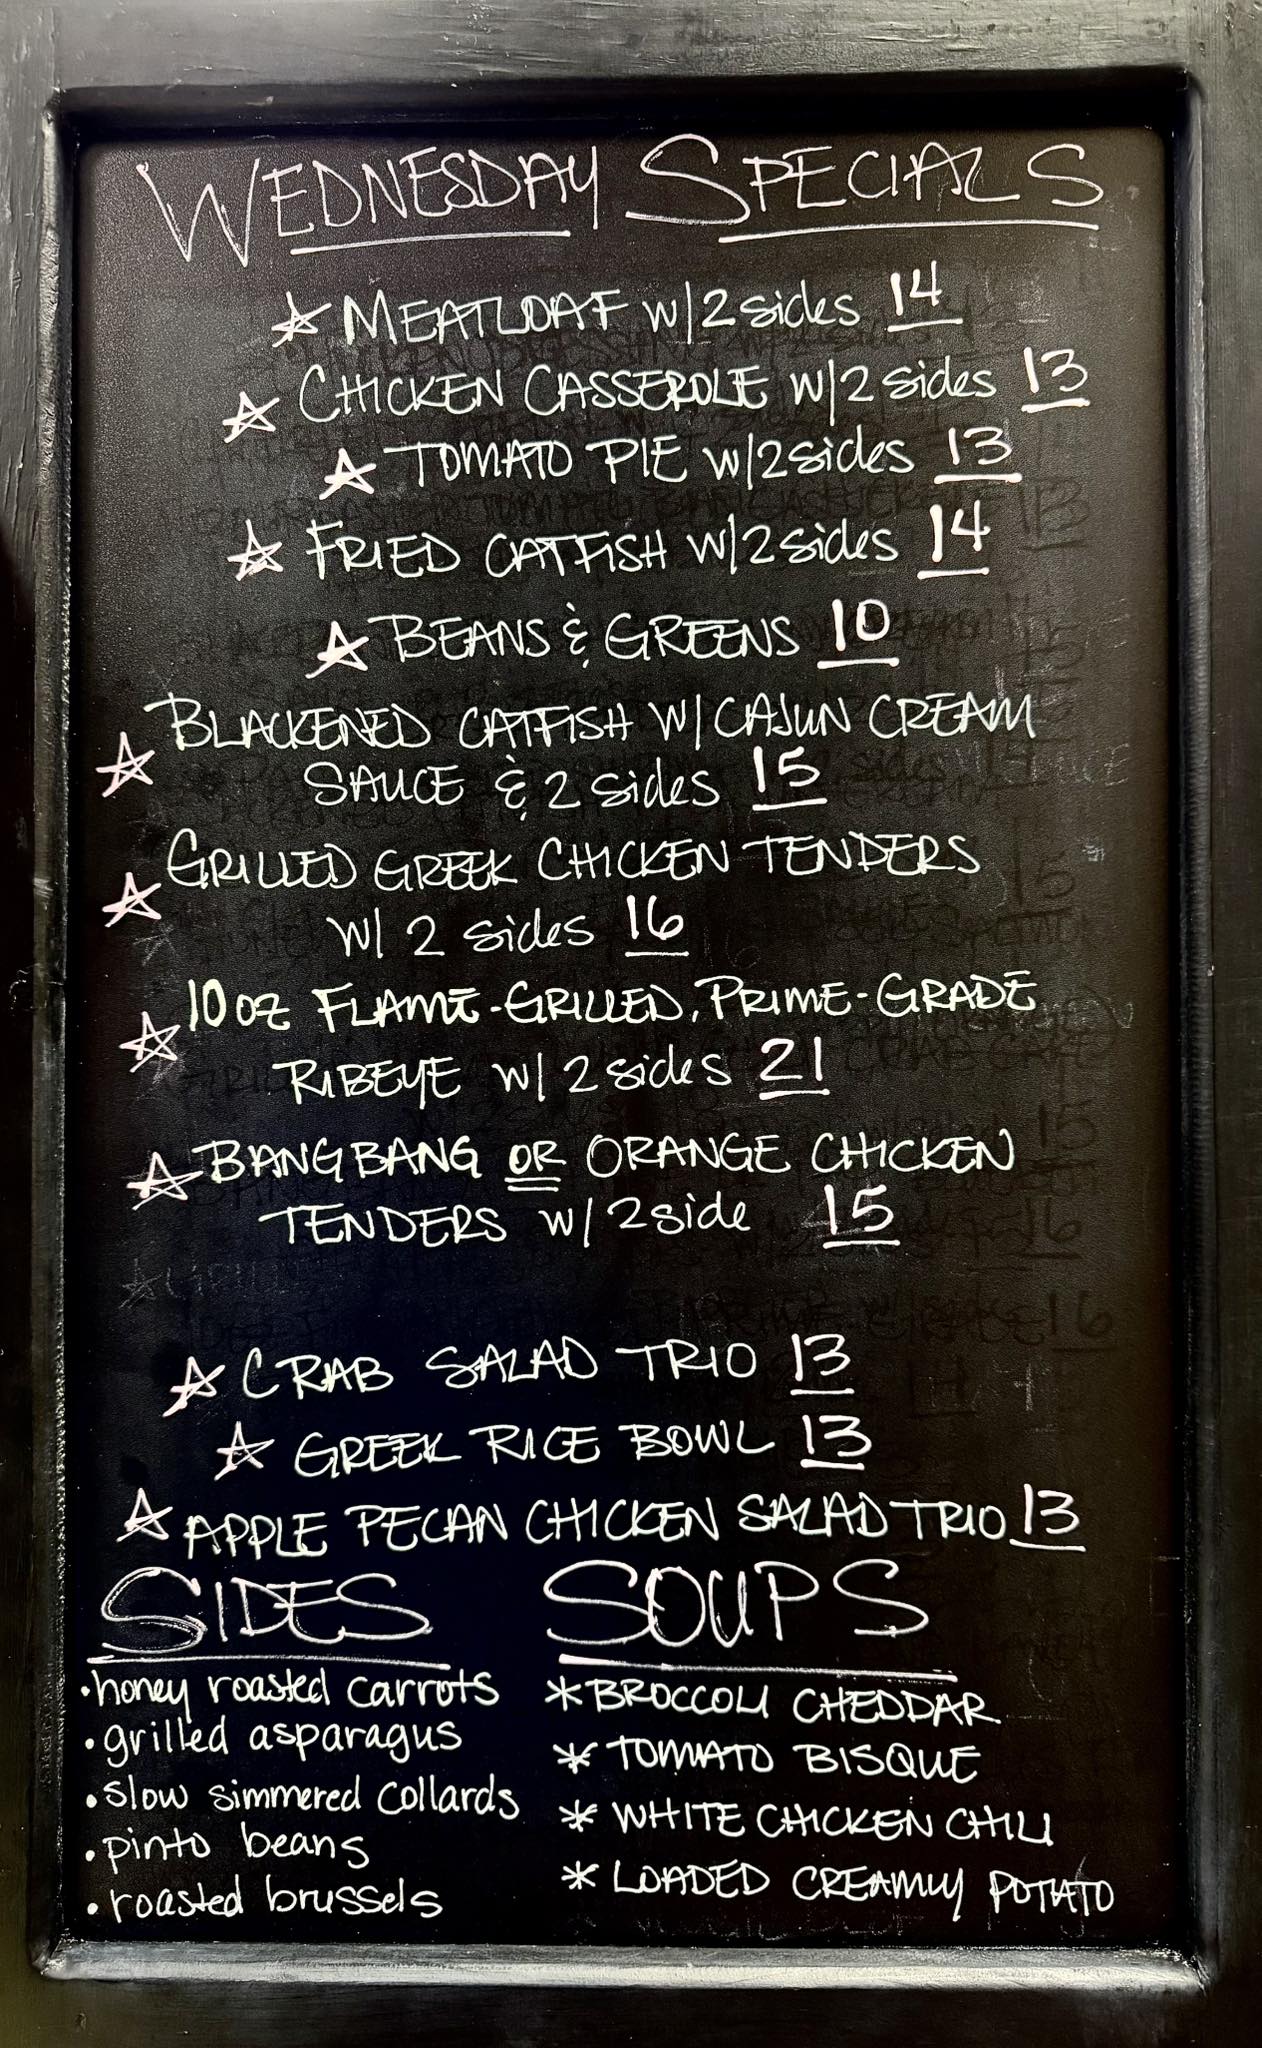 WEDNESDAY SPECIALS
☆ MEATLOAF w/2 sides 14
☆ CHICKEN CASSEROLE w/2 sides 13
☆ TOMATO PIE w/2 sides 13
☆ FRIED CATFISH w/2 sides 14
☆ BEANS & GREENS 10
☆ BLACKENED CATFISH W/ CAJUN CREAM
SAUCE & 2 sides 15
☆ GRILLED GREEK CHICKEN TENDERS
w/ 2 sides 16
☆ 10oz FLAME-GRILLED, PRIME-GRADE
RIBEYE w/ 2 sides 21
☆ BANG BANG OR ORANGE CHICKEN
TENDERS w/ 2 side 15
☆ CRAB SALAD TRIO 13
☆ GREEK RICE BOWL 13
☆ APPLE PECAN CHICKEN SALAD TRIO 13
SIDES
• honey roasted carrots
• grilled asparagus
• slow simmered collards
• pinto beans
• roasted brussels
SOUPS
* BROCCOLI CHEDDAR
* TOMATO BISQUE
* WHITE CHICKEN CHILI
* LOADED CREAMY POTATO